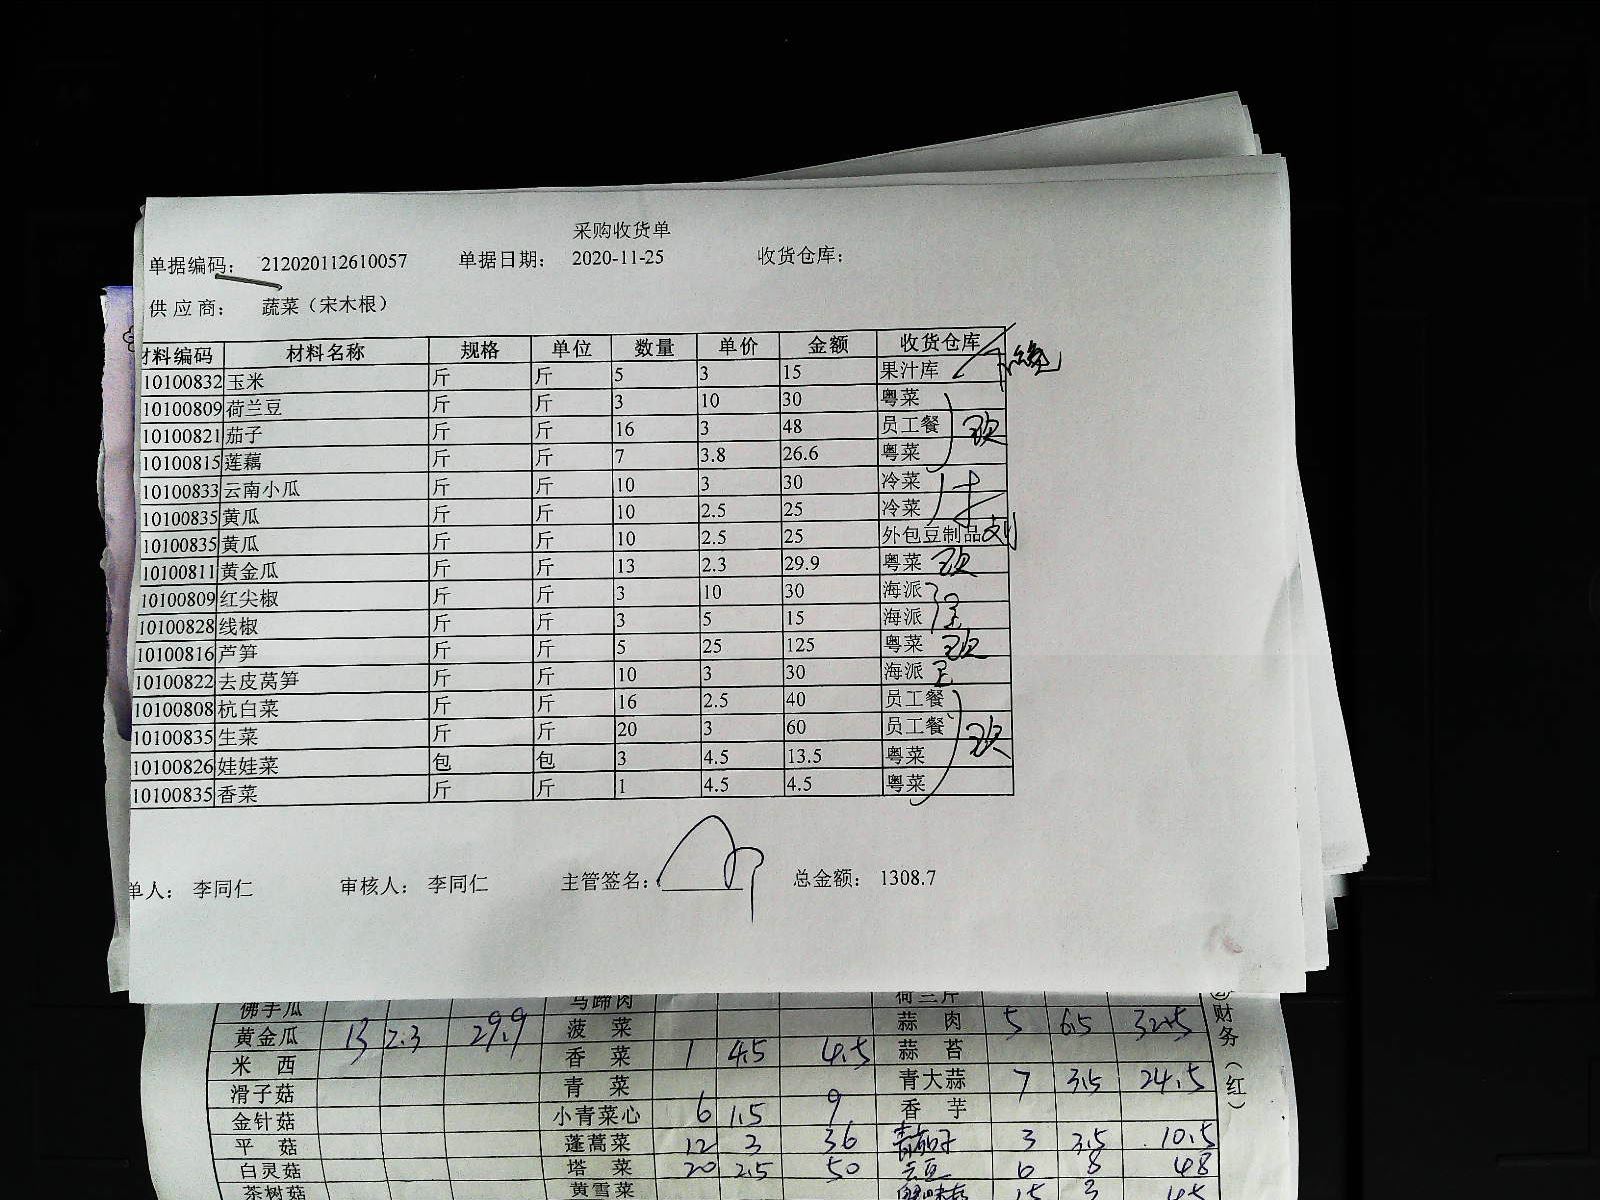 采购收货单
单据编码： 212020112610057 单据日期： 2020-11-25 收货仓库：
供应商： 蔬菜（宋木根）
材料编码 材料名称 规格 单位 数量 单价 金额 收货仓库
10100832 玉米 斤 斤 5 3 15 果汁库
10100809 荷兰豆 斤 斤 3 10 30 粤菜
10100821 茄子 斤 斤 16 3 48 员工餐
10100815 莲藕 斤 斤 7 3.8 26.6 粤菜
10100833 云南小瓜 斤 斤 10 3 30 冷菜
10100835 黄瓜 斤 斤 10 2.5 25 冷菜
10100835 黄瓜 斤 斤 10 2.5 25 外包豆制品
10100811 黄金瓜 斤 斤 13 2.3 29.9 粤菜
10100809 红尖椒 斤 斤 3 10 30 海派
10100828 线椒 斤 斤 3 5 15 海派
10100816 芦笋 斤 斤 5 25 125 粤菜
10100822 去皮莴笋 斤 斤 10 3 30 海派
10100808 杭白菜 斤 斤 16 2.5 40 员工餐
10100835 生菜 斤 斤 20 3 60 员工餐
10100826 娃娃菜 包 包 3 4.5 13.5 粤菜
10100835 香菜 斤 斤 1 4.5 4.5 粤菜
单人： 李同仁 审核人： 李同仁 主管签名： 总金额： 1308.7
佛手瓜 马蹄肉
黄金瓜 13 2.3 29.9 菠菜 蒜肉 5 6.5 32.5
米西 香菜 1 4.5 4.5 蒜苔
滑子菇 青菜 青大蒜 7 3.5 24.5
金针菇 小青菜心 6 1.5 9 香芋
平菇 蓬蒿菜 12 3 36 青茄子 3 3.5 10.5
白灵菇 塔菜 20 2.5 50 云豆 6 8 48
茶树菇 黄雪菜 15 3 45
财务（红）